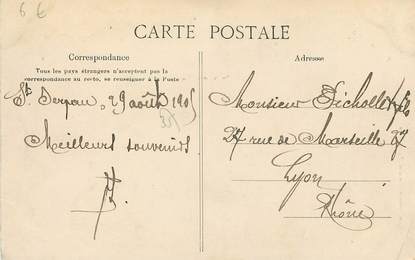 6 €
CARTE POSTALE
Correspondance
Tous les pays étrangers n'acceptent pas la
correspondance au recto, se renseigner à la Poste
St 29 août 1905
Meilleurs souvenirs
Adresse
Monsieur
27 rue de Marseille 27
Lyon
Rhône